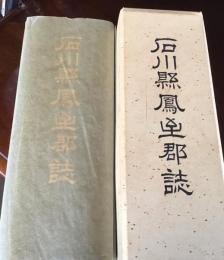 石川縣鳳至郡誌
石川縣鳳至郡誌